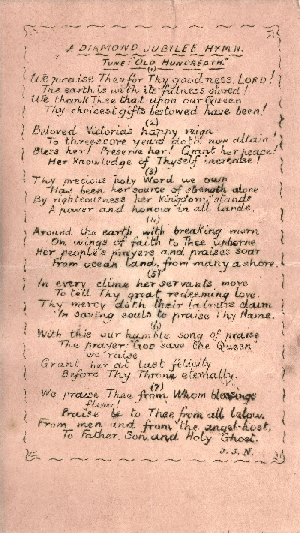 A DIAMOND JUBILEE HYMN.
TUNE "OLD HUNDREDTH"
(1)
We praise Thee for Thy goodness, LORD!
The earth is with its fulness stored!
We thank Thee that upon our Queen
Thy choicest gifts bestowed have been!
(2)
Beloved Victoria's happy reign
To threescore years doth now attain
Bless her! Preserve her! Grant her peace!
Her knowledge of Thyself increase!
(3)
Thy precious holy Word we own
Has been her source of strength alone
By righteousness her Kingdom stands
A power and honour in all lands.
(4)
Around the earth with breaking morn
On wings of faith to Thee upborne
Her people's prayers and praises soar
From ocean land, from many a shore.
(5)
In every clime her servants move
To tell Thy great redeeming love.
Thy mercy doth their labours claim
In saving souls to praise Thy Name.
(6)
With this our humble song of praise
The prayer "God save the Queen"
we raise
Grant her at last felicity
Before Thy Throne eternally.
(7)
We praise Thee from Whom blessings
flow!
Praise be to Thee from all below.
From men and from the angel-host,
To Father, Son, and Holy Ghost.
J. S. N.